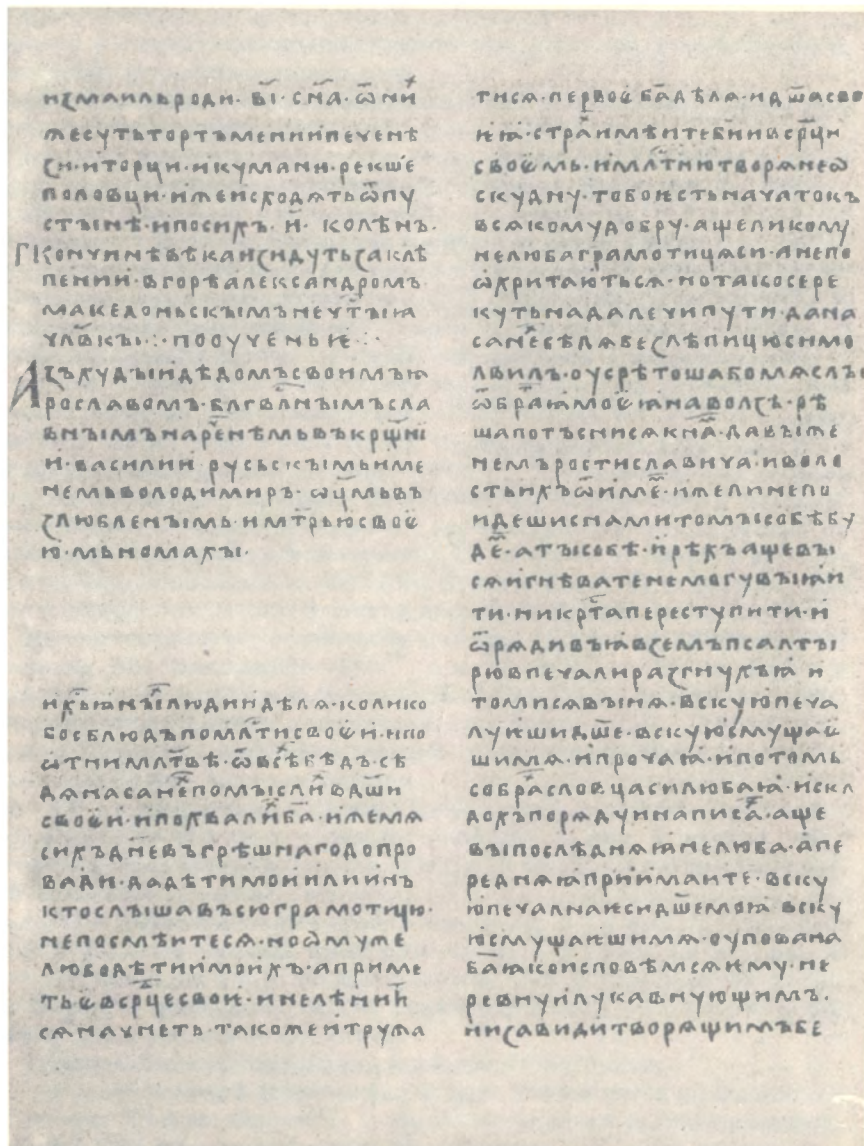 измаильроди· в҃і· сн҃а· ѿни́х
жесуть тортъменииипеченѣ
зи· иторци· икумани· рекше
половци· ижеисходѧть ѿпу
стынѣ· ипосихъ· и҃· колѣнъ·
Гкончинѣвѣкаизидутьзаклѣ
пении· вгорѣалександромъ
македоньскымънечⷭ҇тыꙗ
чл҃вкы·:· пооученьѥ·:·
Азъхудыидѣдомъсвоимъꙗ
рославомъ· блгⷭ҇влнымъсла
внымънарⷱ҇енѣмьвъкрщⷩ҇і
и· василии русьскымьиме
немьволодимиръ· ѡц҃мьвъ
злюбленымь· имт҃рьюсвоѥ
ю· мьномахы·
ихⷭ҇ъꙗныⷯлюдиидѣлѧ· колико
босблюдъпомлⷭ҇тисвоѥи· ипо
ѡтнимлт҃вѣ· ѿвсѣⷯбѣдъ· сѣ
дѧнасанеⷯпомыслиⷯвдш҃и
своѥи· ипохвалиⷯба҃· ижемѧ
сихъднⷭ҇евъгрѣшнагодопро
вади· дадѣтимоиилиинъ
ктослышавъсюграмотицю·
непосмѣитесѧ· ноѡмуже
люводѣтиимоихъ· априме
тьѥвсрⷣцесвоѥ· инелѣнити
сѧначнеть· такожеитружа
тисѧ· первоѥба҃дѣлѧ· идш҃асво
ѥꙗ· страⷯимѣитеб҃иивсрⷣци
своѥмь· имлⷭ҇тнютворѧнеѡ
скудну· тобоѥстьначатокъ
всѧкомудобру· ащеликому
нелюбаграмотицѧси· анепо
ѡхритаються· нотакосере
куть надалечипути· дана
санеⷯсѣдѧбезлѣпицюсимо
лвилъ· оусрѣтошабомѧслъ
ѿбраⷮꙗмоѥꙗнаволзѣ· рѣ
шапотъснисѧкнаⷨ· давыже
немъростиславича· иволо
стьихъѿимеⷨ· ижелинепо
идешиснами· томысобѣбу
деⷨ· атысобѣ· ирѣхъащевы
сѧигнѣватенемогувыꙗи
ти· никрⷭ҇тапереступити· и
ѿрѧдивъꙗвземъпсалты
рювпечалиразгнухъꙗ и
томисѧвынѧ· вскуюпеча
луѥшидш҃е· вскуюсмущаѥ
шимѧ· ипрочаꙗ· ипотомь
собраⷯсловцасилюбаꙗ· искл
адохъпорѧдуинаписаⷯ· аще
выпослѣднѧꙗнелюба· апе
реднѧꙗприимаите· вску
юпечалнаѥсидш҃емоꙗ вску
юсмущаѥшимѧ· оуповаина
ба҃ꙗкоисповѣмсѧѥму· не
ревнуилукавнующимъ·
низавидитворѧщимъбе